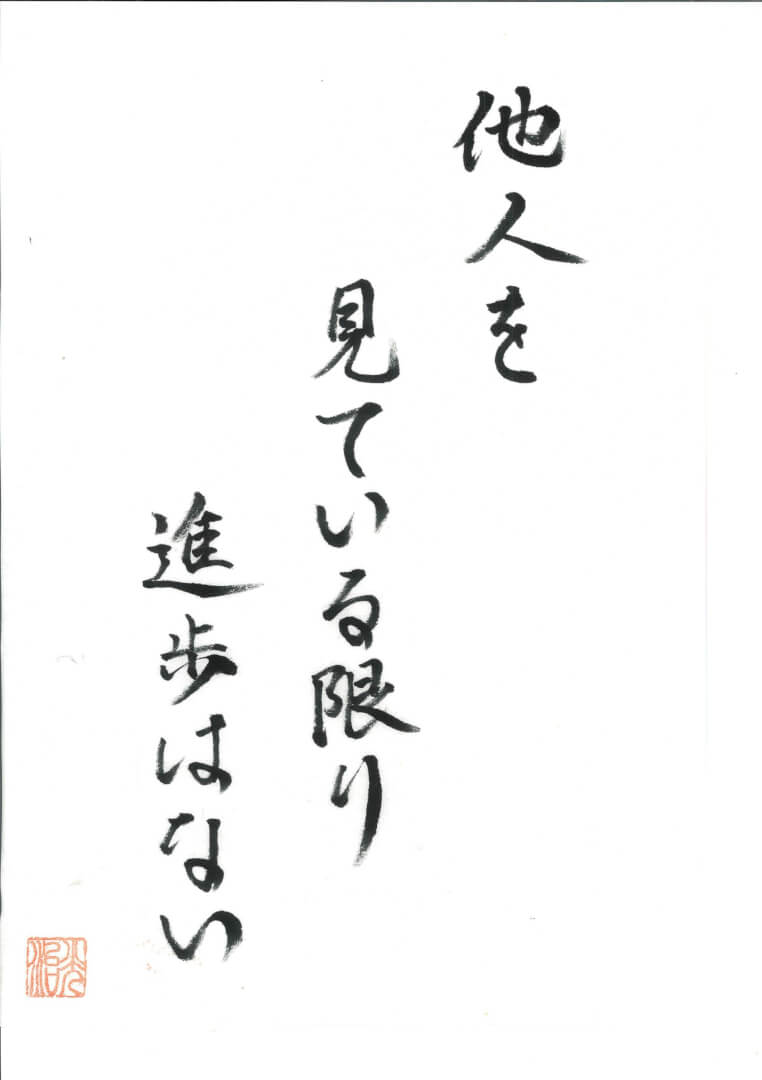 他人を
見ている限り
進歩はない